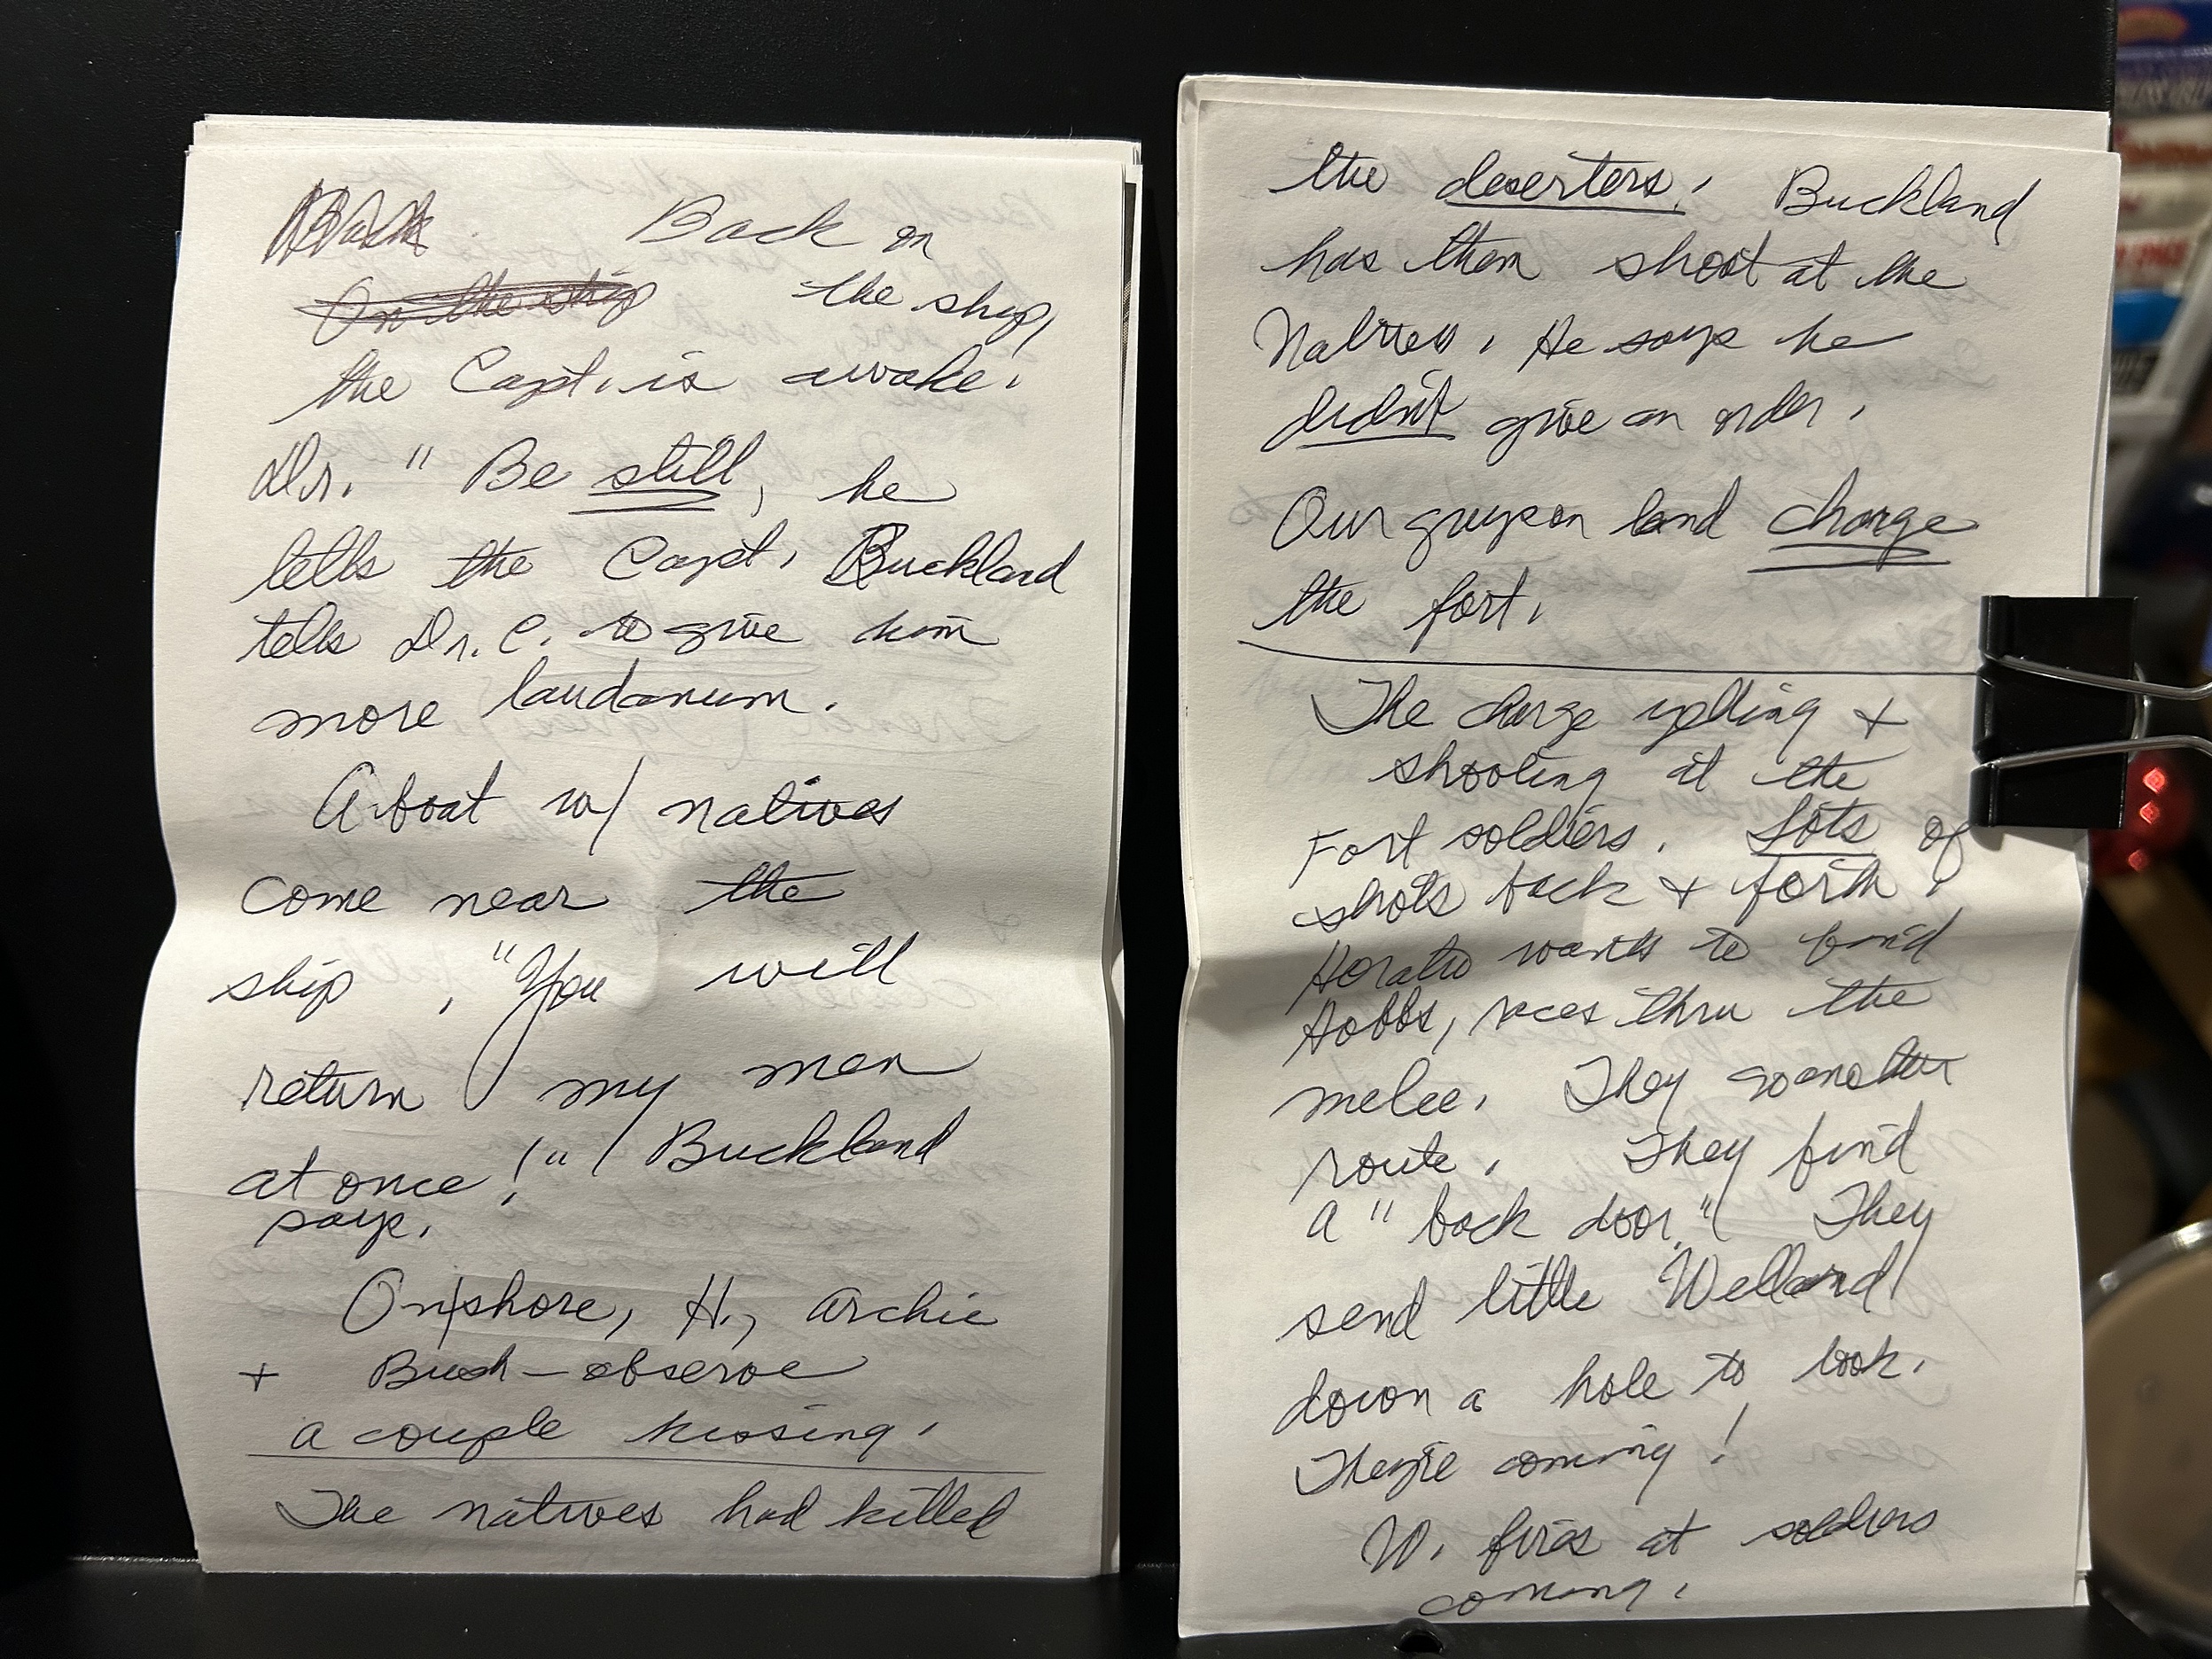 Back on
On the ship the ship,
the Capt. is awake.
Dr. " Be still, he
tells the Capt. Buckland
tells Dr. C. to give him
more laudanum.
A boat w/ natives
come near the
ship, "You will
return my men
at once!" Buckland
says.
On shore, H., Archie
+ Bush - observe
a couple kissing.
The natives had killed
the deserters. Buckland
has them shoot at the
Natives. He says he
didn't give an order.
Our guys on land charge
the fort.
The charge yelling +
shooting at the
Fort soldiers. Lots of
shots back + forth.
Horatio wants to find
Hobbs, races thru the
melee. They go another
route. They find
a "back door." They
send little Welland
down a hole to look.
They're coming!
W. fires at soldiers
coming.